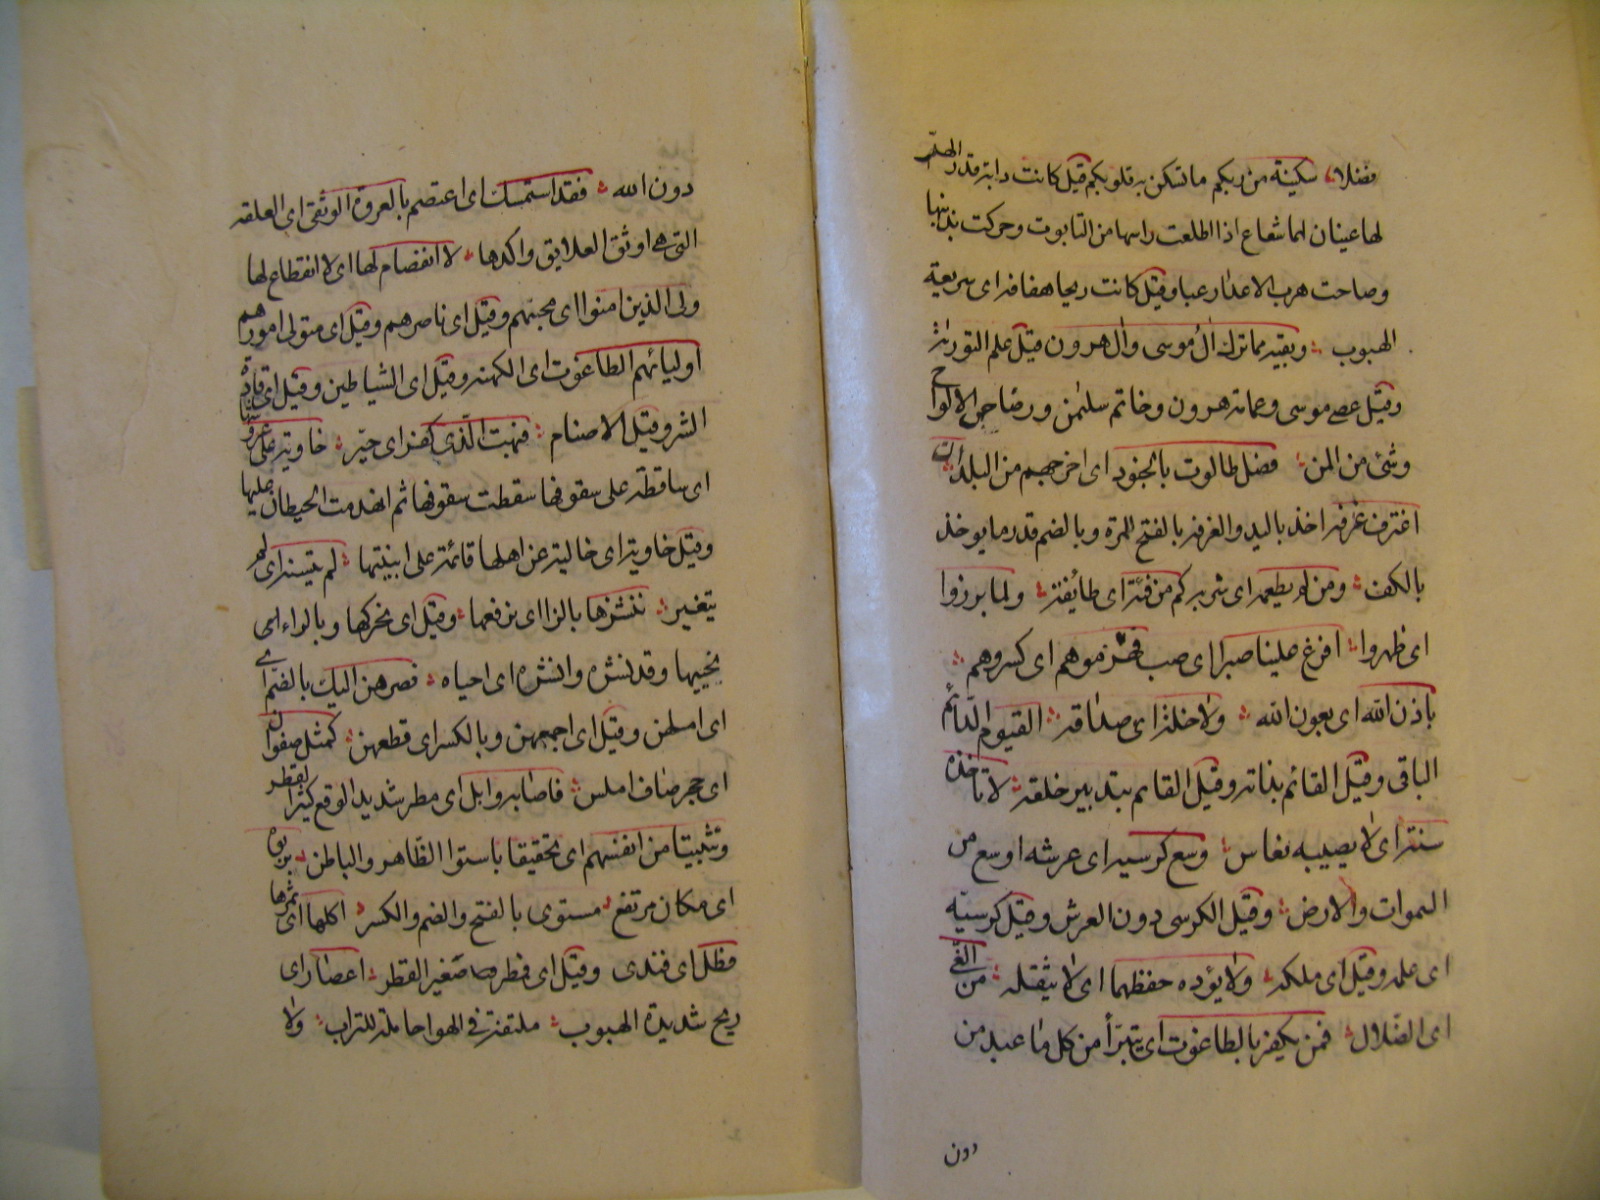 فضلا سكينة من ربكم ما تسكن به قلوبكم قيل كانت دابة قدر الهر
لها عينان لهما شعاع اذا اطلعت راسها من التابوت وحركت بذنبها
وصاحت هرب الاعداء رعبا وقيل كانت ريحا هفافة اى سريعة
الهبوب وبقية مما ترك ال موسى وال هرون قيل علم التورية
وقيل عصى موسى وعمامة هرون وخاتم سليمن ورضاض الالواح
وشئ من المن فصل طالوت بالجنود اى اخرجهم من البلدان
اغترف غرفة اخذ باليد والغرفة بالفتح المرة وبالضم قدر ما يوخذ
بالكف ومن لم يطعمه اى شربه كم من فئة اى طائفة ولما برزوا
اى ظهروا افرغ علينا صبرا اى صب فهزموهم اى كسروهم
باذن الله اى بعون الله ولا خلة اى صداقة القيوم الدائم
الباقى وقيل القائم بذاته وقيل القايم بتدبير خلقه لا تاخذه
سنة اى لا يصيبه نعاس وسع كرسيه اى عرشه اوسع من
السموات والارض وقيل الكرسى دون العرش وقيل كرسيه
اى علمه وقيل اى ملكه ولا يؤده حفظهما اى لا يثقله من الغى
اى الضلال فمن يكفر بالطاغوت اى يتبرأ من كل ما عبد من
دون
دون الله فقد استمسك اى اعتصم بالعروة الوثقى اى العلقة
التى هى اوثق العلايق واكدها لا انفصام لها اى لا انقطاع لها
ولى الذين امنوا اى محبهم وقيل اى ناصرهم وقيل اى متولى امورهم
اوليائهم الطاغوت اى الكهنة وقيل اى الشياطين وقيل اى قادة
الشر وقيل الاصنام فبهت الذى كفر اى حير خاوية على عروشها
اى ساقطة على سقوفها سقطت سقوفها ثم انهدمت الحيطان عليها
وقيل خاوية اى خالية عن اهلها قائمة على ابنيتها لم يتسنه اى لم
يتغير ننشزها بالزا اى نرفعها وقيل اى نحركها وبالراء اى
نحييها وقد نشره وانشره اى احياه فصرهن اليك بالضم اى
اى املهن وقيل اى اجمعهن وبالكسر اى قطعهن كمثل صفوان
اى حجر صاف املس فاصابه وابل اى مطر شديد الوقع كبير القطر
وتثبيتا من انفسهم اى تحقيقا باستوا الظاهر والباطن بربوة
اى مكان مرتفع مستوى بالفتح والضم والكسر اكلها اى ثمرها
فطل اى فندى وقيل اى فطر صغير القطر اعصار اى
ريح شديدة الهبوب ملتفة فى الهوا حاملة للتراب ولا